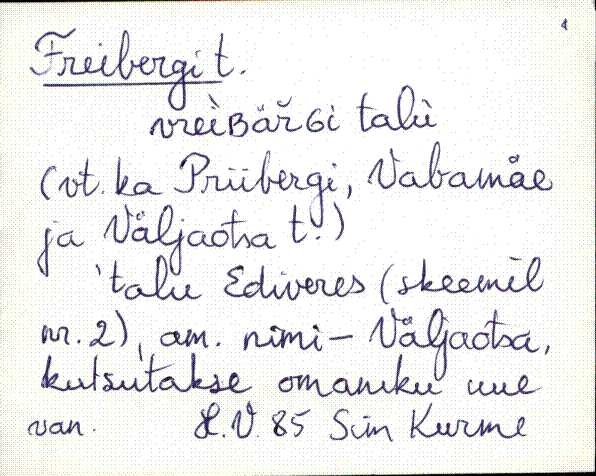 4
Freibergi t.
vreìBäřGi talù
(vt. ka Priibergi, Vabamäe
ja Väljaotsa t.)
'talu Ediveres (skeemil
nr. 2), am. nimi - Väljaotsa,
kutsutakse omaniku uue
van. H.V. 85 Siim Kurme